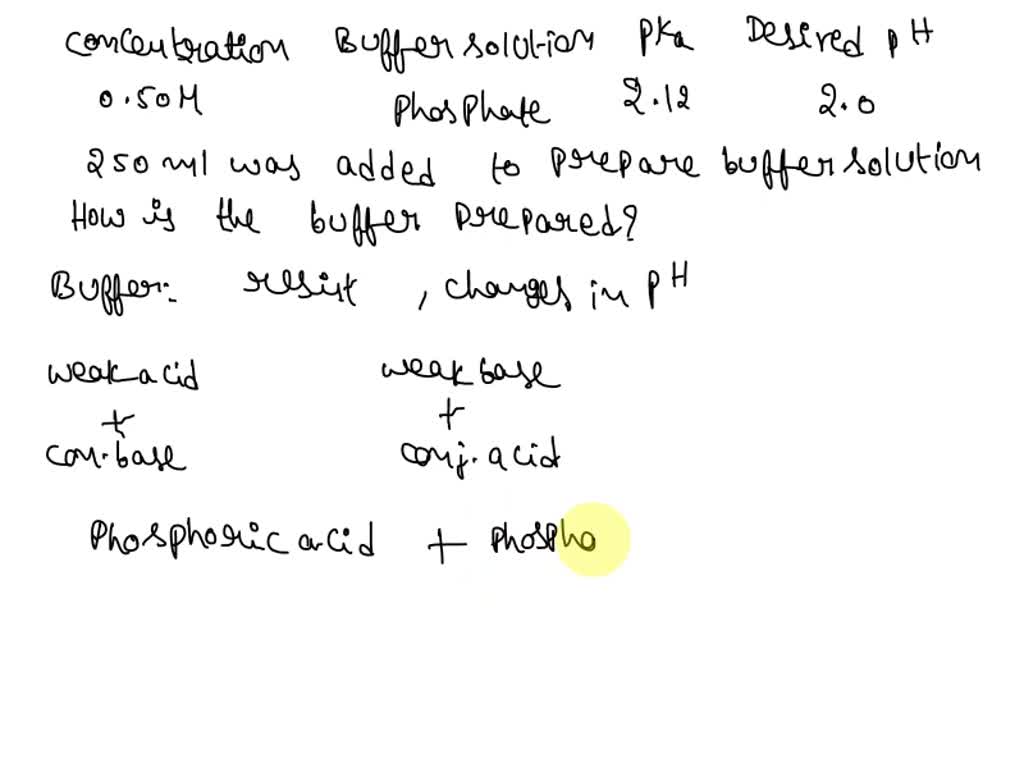 Concentration Buffer solution pKa Desired pH
0.50M Phosphate 2.12 2.0
250 ml was added to prepare buffer solution
How is the buffer prepared?
Buffer: resist, changes in pH
weak acid weak base
+ +
con.base conj.acid
Phosphoric acid + Phospho